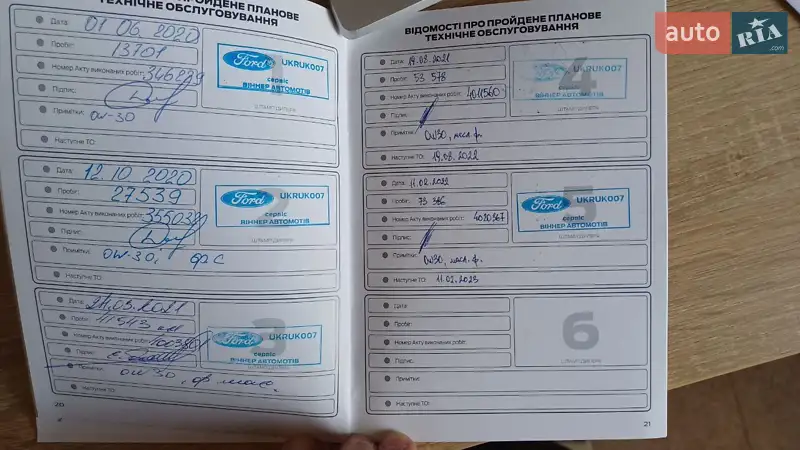 ПРОЙДЕНЕ ПЛАНОВЕ
ТЕХНІЧНЕ ОБСЛУГОВУВАННЯ
Дата: 01 06. 2020
Пробіг: 13701
Номер Акту виконаних робіт: 346839
Підпис:
Примітки: 0W-30
Наступне ТО:
1
Ford UKRUK007
сервіс
ВІННЕР АВТОМОТІВ
ШТАМП ДИЛЕРА
Дата: 12.10 2020
Пробіг: 27539
Номер Акту виконаних робіт:
Підпис:
Примітки: 0W-30,
Наступне ТО:
2
Ford UKRUK007
сервіс
ВІННЕР АВТОМОТІВ
ШТАМП ДИЛЕРА
Дата: 03.2021
Пробіг: 41543 км
Номер Акту виконаних робіт:
Підпис:
Примітки: 0W 30, ф. мас.
Наступне ТО:
3
Ford UKRUK007
сервіс
ВІННЕР АВТОМОТІВ
20
ВІДОМОСТІ ПРО ПРОЙДЕНЕ ПЛАНОВЕ
ТЕХНІЧНЕ ОБСЛУГОВУВАННЯ
Дата: 19.08.2021
Пробіг: 53 578
Номер Акту виконаних робіт: 4011560
Підпис:
Примітки: 0W30, масл. ф.
Наступне ТО: 19.08.2022
4
UKRUK007
сервіс
ВІННЕР АВТОМОТІВ
ШТАМП ДИЛЕРА
Дата: 11.02.2022
Пробіг: 73 386
Номер Акту виконаних робіт: 4020367
Підпис:
Примітки: 0W30, масл. ф.
Наступне ТО: 11.02.2023
5
Ford UKRUK007
сервіс
ВІННЕР АВТОМОТІВ
ШТАМП ДИЛЕРА
Дата:
Пробіг:
Номер Акту виконаних робіт:
Підпис:
Примітки:
Наступне ТО:
6
ШТАМП ДИЛЕРА
21
auto RIA .com